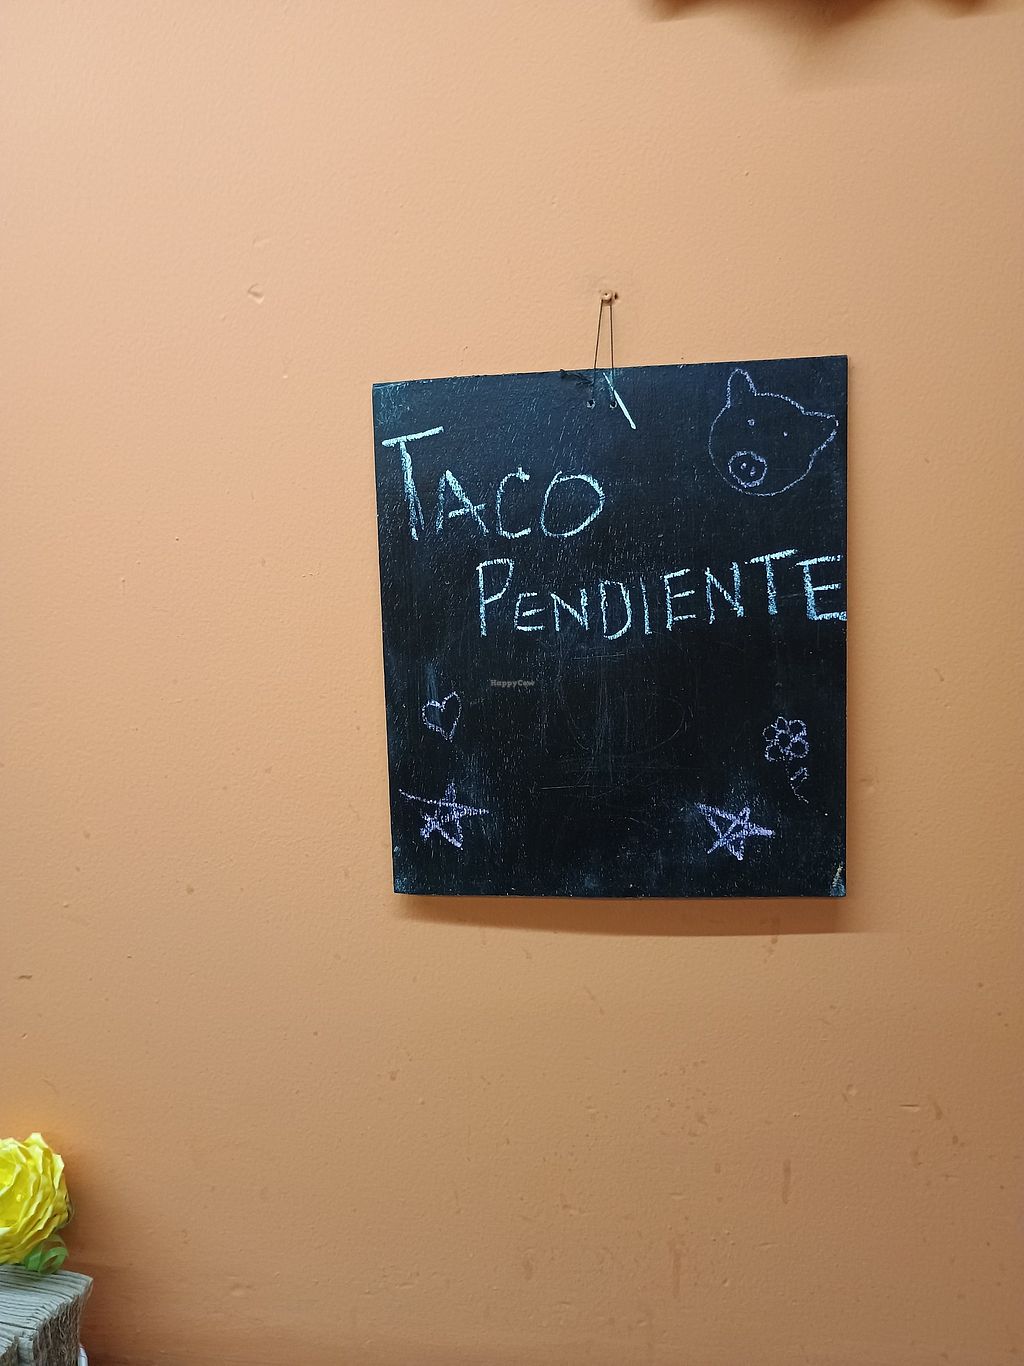 TACO
PENDIENTE
HappyCow